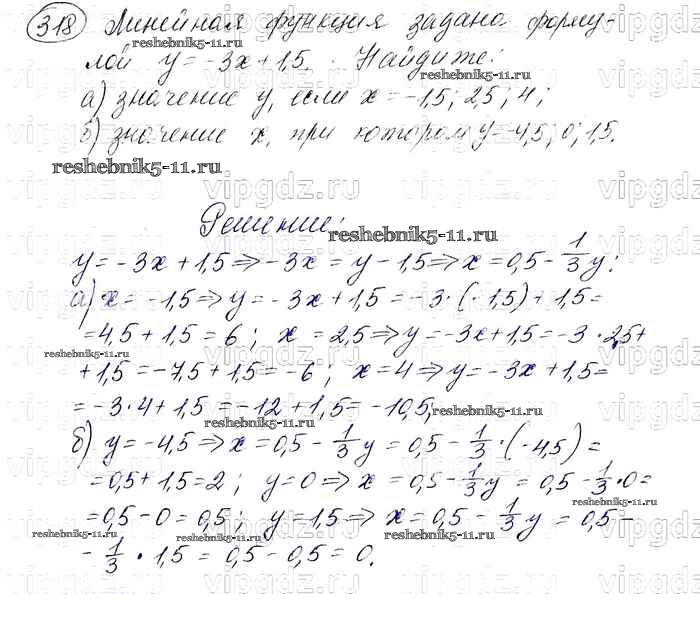 318 Линейная функция задана форму-
лой y=-3x+1,5. Найдите:
а) значение y, если x=-1,5; 2,5; 4;
б) значение x, при котором y=-4,5; 0; 1,5.
reshebnik5-11.ru
Решение:
y=-3x+1,5⇒-3x=y-1,5⇒x=0,5-1/3y;
а) x=-1,5⇒y=-3x+1,5=-3·(-1,5)+1,5=
=4,5+1,5=6; x=2,5⇒y=-3x+1,5=-3·2,5+
+1,5=-7,5+1,5=-6; x=4⇒y=-3x+1,5=
=-3·4+1,5=-12+1,5=-10,5;
б) y=-4,5⇒x=0,5-1/3y=0,5-1/3·(-4,5)=
=0,5+1,5=2; y=0⇒x=0,5-1/3y=0,5-1/3·0=
=0,5-0=0,5; y=1,5⇒x=0,5-1/3y=0,5-
-1/3·1,5=0,5-0,5=0.